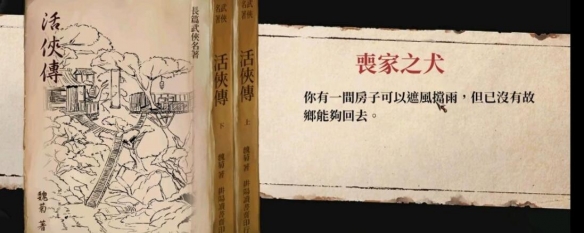 活俠傳
長篇武俠名著
魏菊 著
活俠傳
下
魏菊 著
活俠傳
上
魏菊 著
喪家之犬
你有一間房子可以遮風擋雨，但已沒有故
鄉能夠回去。